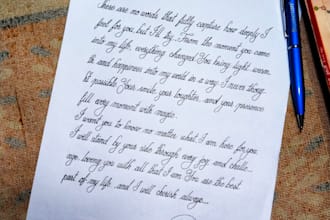 There are no words that fully capture how deeply I
feel for you, but I'll try. From the moment you came
into my life, everything changed. You bring light, warm
th and happiness into my world in a way I never thoug
ht possible. Your smile, your laughter, and your presence
fill every moment with magic.
I want you to know no matter what I am here for you
I will stand by your side through every joy and challe
nge, loving you with all that I am. You are the best
part of my life, and I will cherish always...